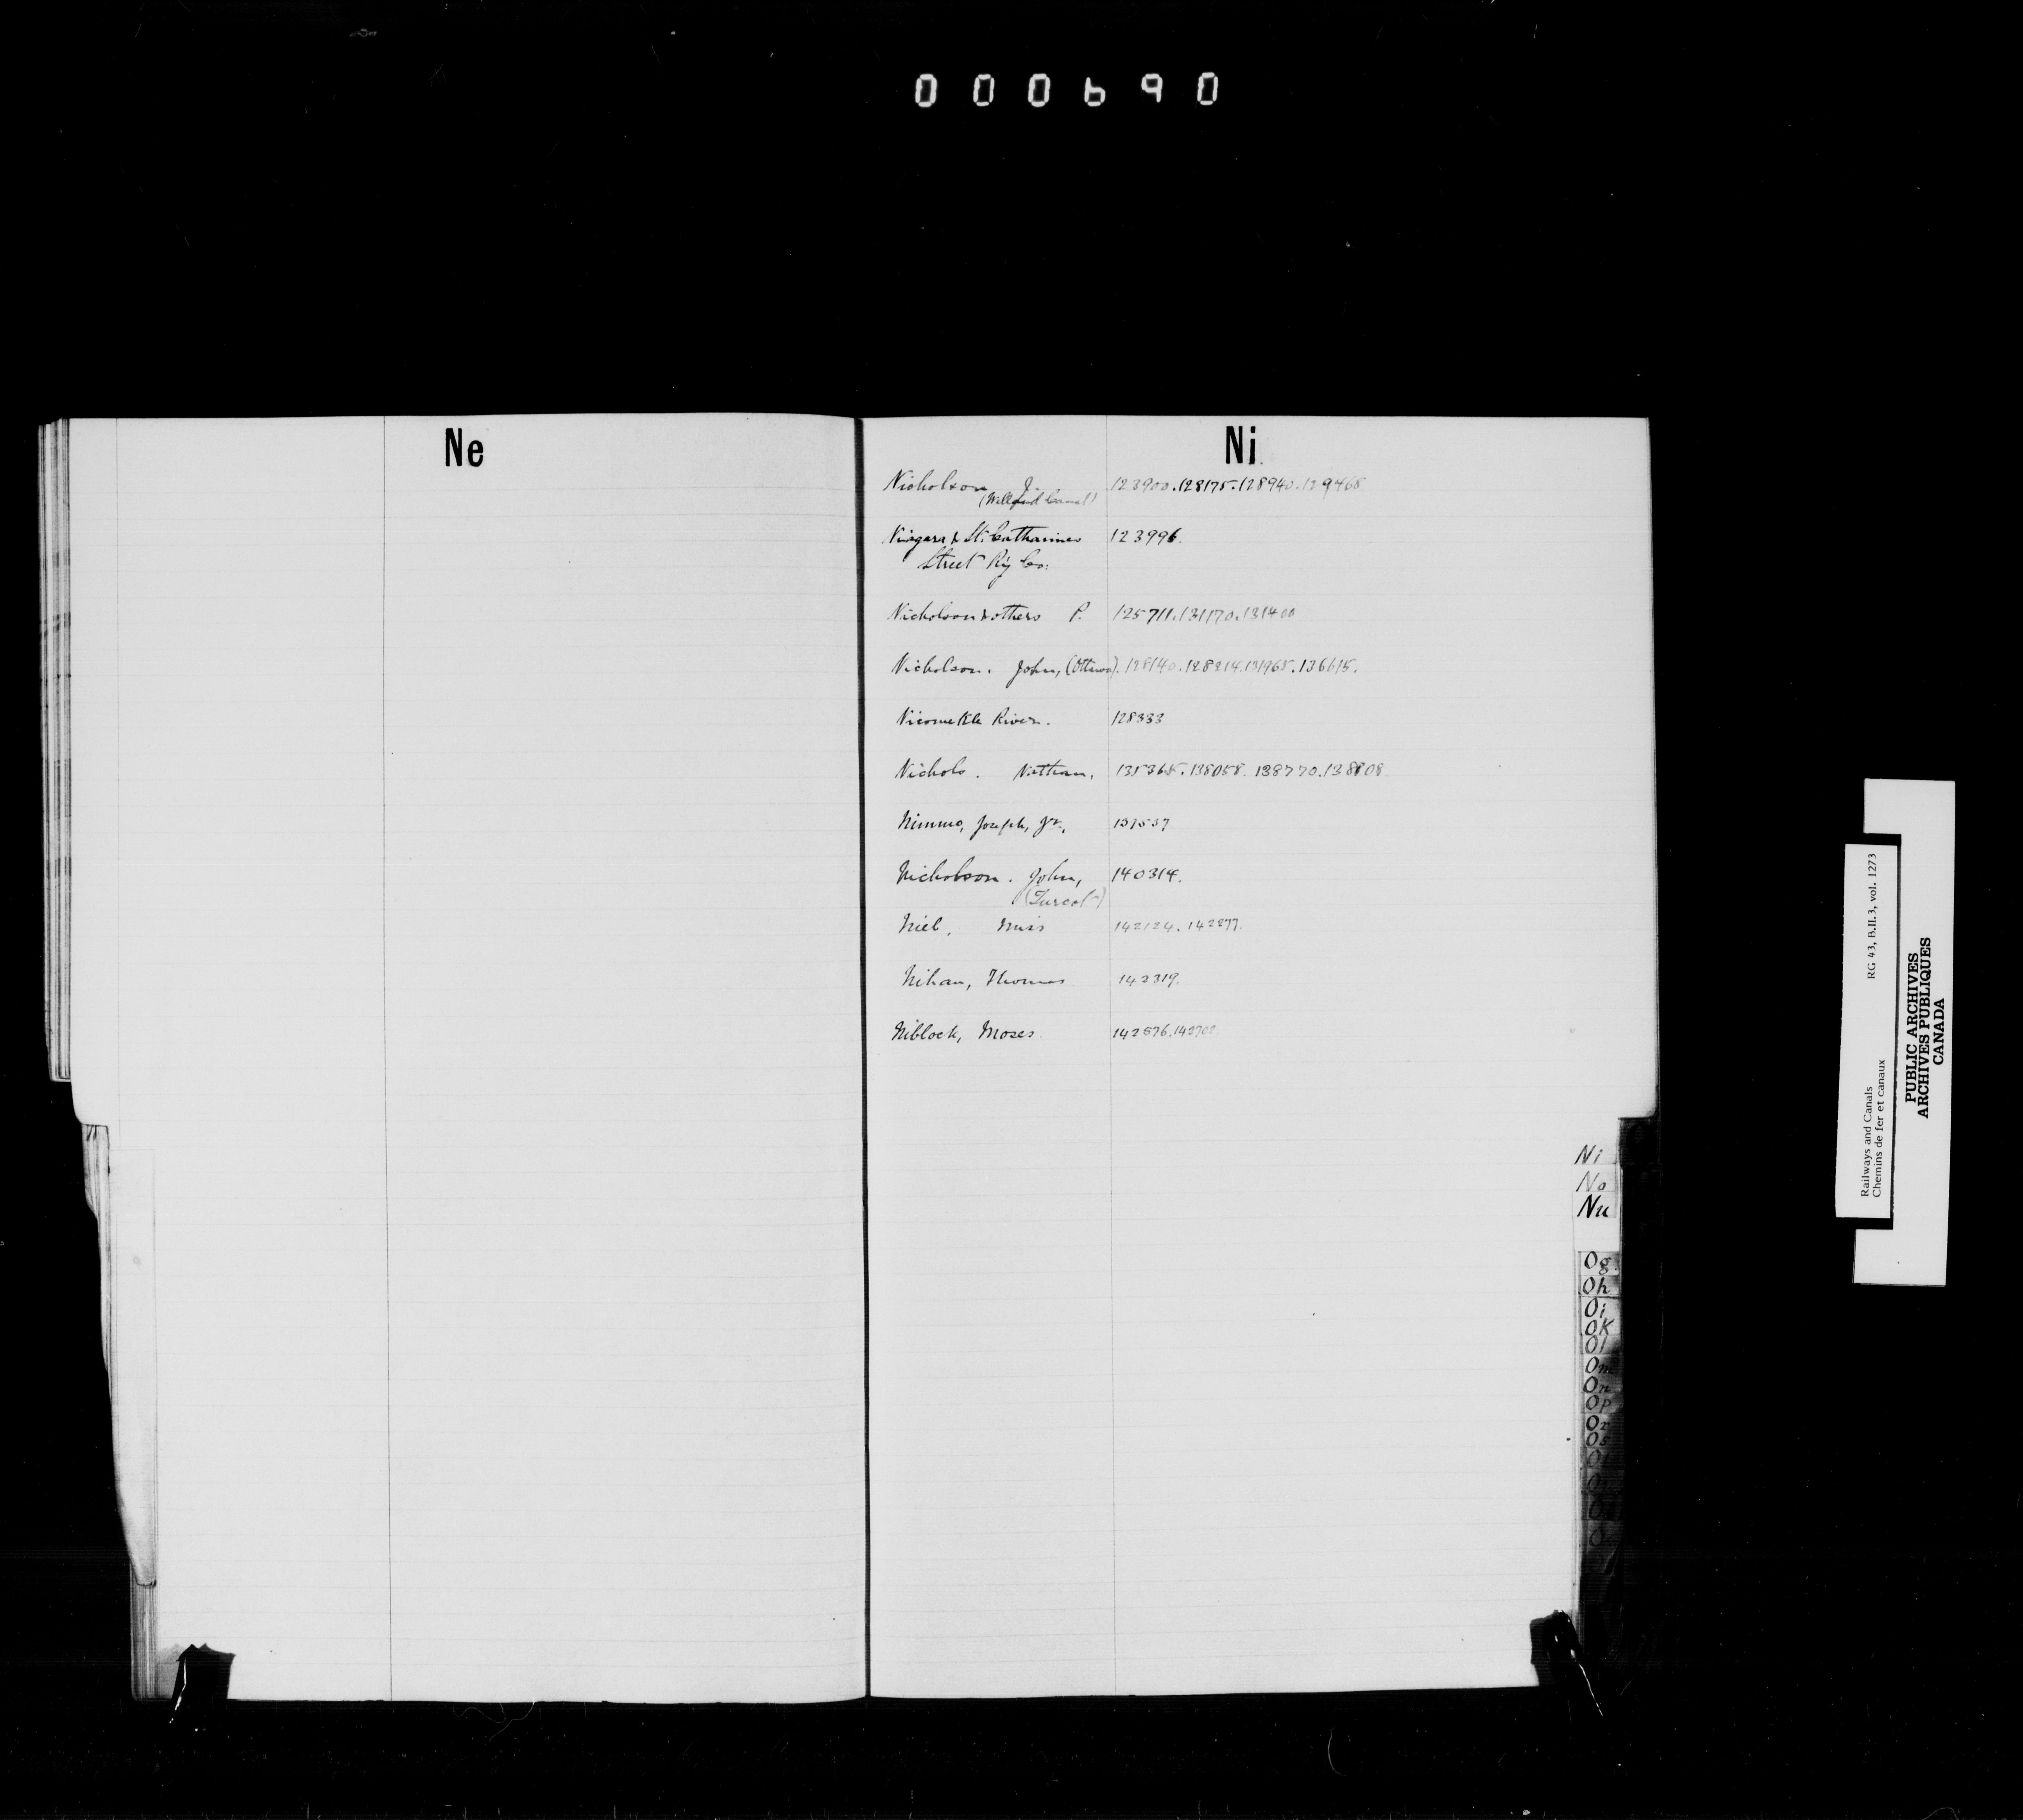 000690
Ne
Ni
Nicholson J. 123900.128175.128940.129468
(Welland Canal)
Niagara & St. Catharines 123996.
Street Ry Co:
Nicholson & others P. 125711.131170.131400
Nicholson. John, (Ottawa). 128140.128214.131965.136615.
Nicomekle River. 128333
Nichols. Nathan. 135365.138058.138770.138808
Nimmo, Joseph, Jr., 137537
Nicholson. John, 140314.
(Turcot)
Niel, Miss 142124. 142877.
Nihan, Thomas 142319.
Niblock, Moses. 142576.142702.
Ni
No
Nu
Og
Oh
Oi
OK
Ol
Om
On
Op
Or
Os
Railways and Canals RG 43, B.II.3, vol. 1273
Chemins de fer et canaux
PUBLIC ARCHIVES
ARCHIVES PUBLIQUES
CANADA